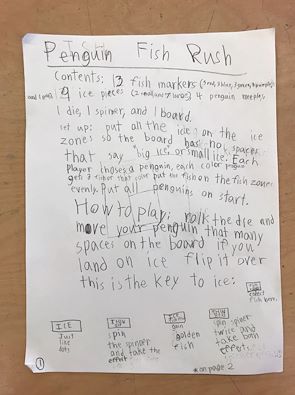 Penguin Fish Rush
Contents: 13 fish markers
ice pieces 4 penguin
1 die, 1 spiner, and 1 board.
set up: put all the ice on the ice
zones so the board has no spaces
that say big ice or small ice. Each
player choses a penguin, each color
gets that color put the fish on the fish zones
evenly. Put all penguins on start.
How to play: rolk the dse and
move your penguin that many
spaces on the board if you
land on ice flip it over
this is the key to ice:
ICE
Just
like
spin
the spinner
and take the
effect
gain golden
fish
spin spiner
twice and
take
effect
fish here.
1
*on page 2